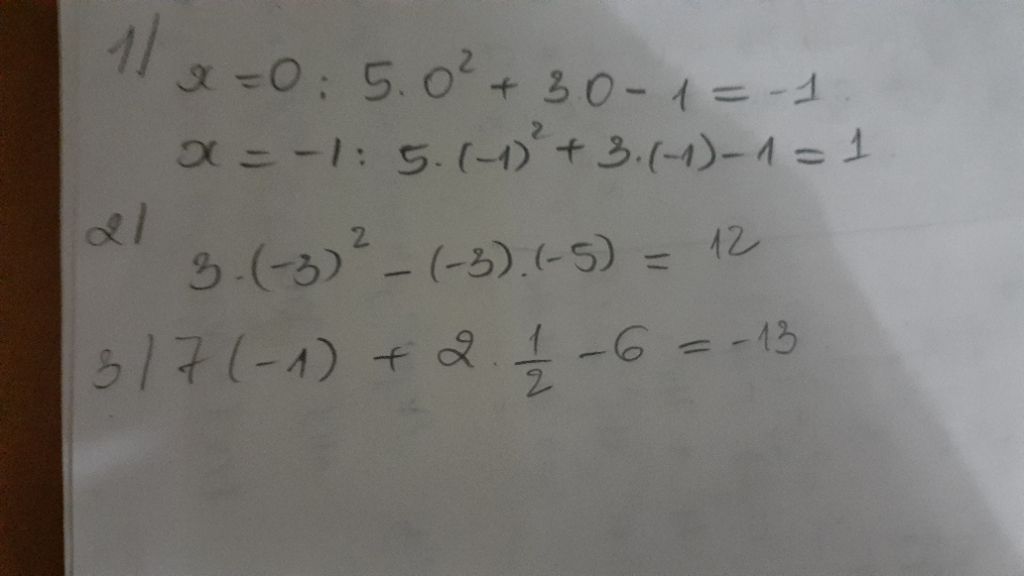 1/ x = 0 : 5.0² + 3.0 - 1 = -1
x = -1 : 5.(-1)² + 3.(-1) - 1 = 1
2/ 3.(-3)² - (-3).(-5) = 12
3/ 7(-1) + 2. 1/2 - 6 = -13